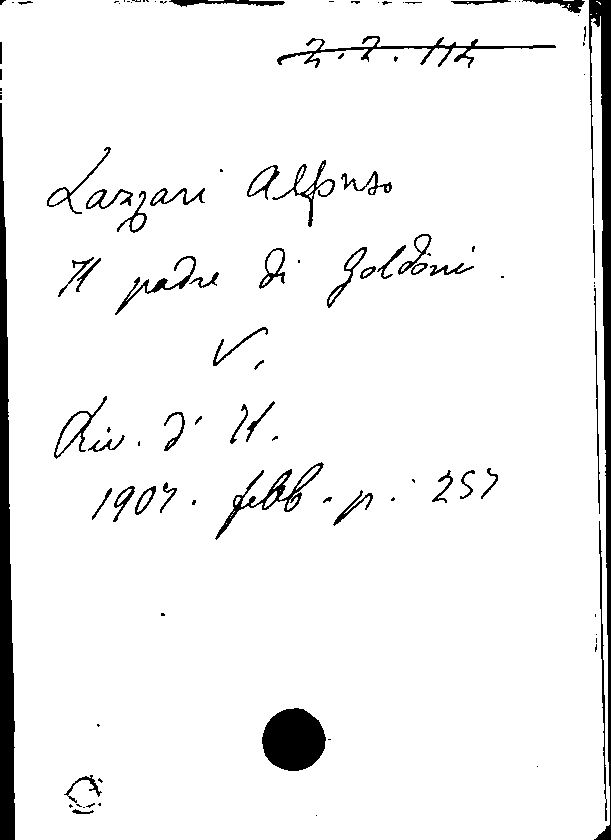 Z. Z. 114
Lazzari Alfonso
Il padre di Goldoni.
V.
Riv. d' It.
1907. febb. p. 257